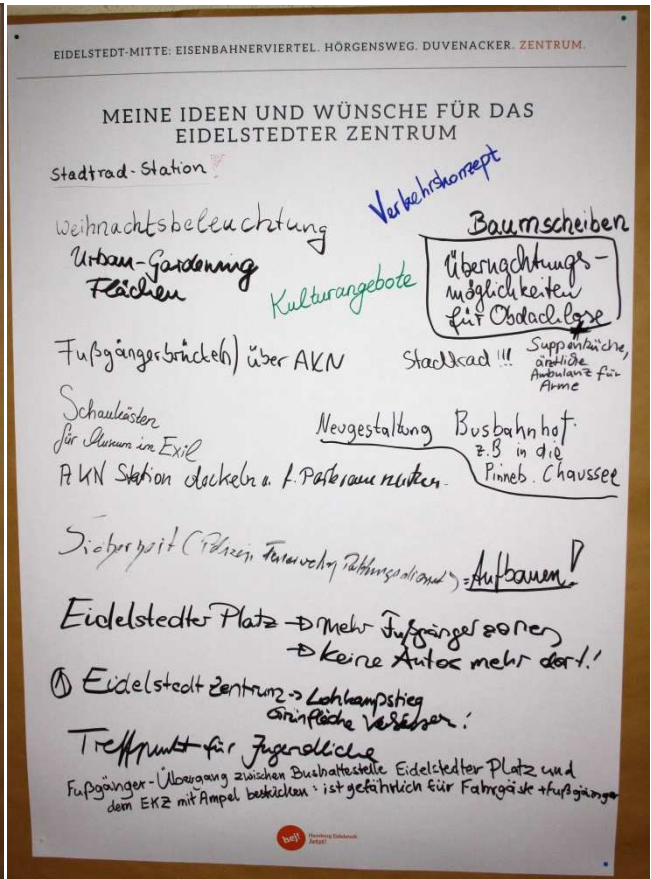 EIDELSTEDT-MITTE: EISENBAHNERVIERTEL. HÖRGENSWEG. DUVENACKER. ZENTRUM.
MEINE IDEEN UND WÜNSCHE FÜR DAS
EIDELSTEDTER ZENTRUM
Stadtrad-Station!
Verkehrskonzept
Weihnachtsbeleuchtung
Urban-Gardening
Flächen
Kulturangebote
Baumscheiben
Übernachtungs-
möglichkeiten
für Obdachlose
Suppenküche,
ärztliche
Ambulanz für
Arme
Fußgängerbrücke(n) über AKN
Stadtrad!!!
Schaukästen
für Museum im Exil
Neugestaltung Busbahnhof
z.B in die
Pinneb. Chaussee
AKN Station deckeln u. f. Parkraum nutzen.
Sicherheit (Polizei, Feuerwehr, Rettungsdienst) = Aufbauen!
Eidelstedter Platz → mehr Fußgängerzonen
→ keine Autos mehr dort!
Eidelstedt Zentrum → Lohkampstieg
Grünfläche
Treffpunkt für Jugendliche
Fußgänger-Übergang zwischen Bushaltestelle Eidelstedter Platz und
dem EKZ mit Ampel bestücken: ist gefährlich für Fahrgäste + Fußgänger
hej!
Hamburg Eidelstedt
Jetzt!